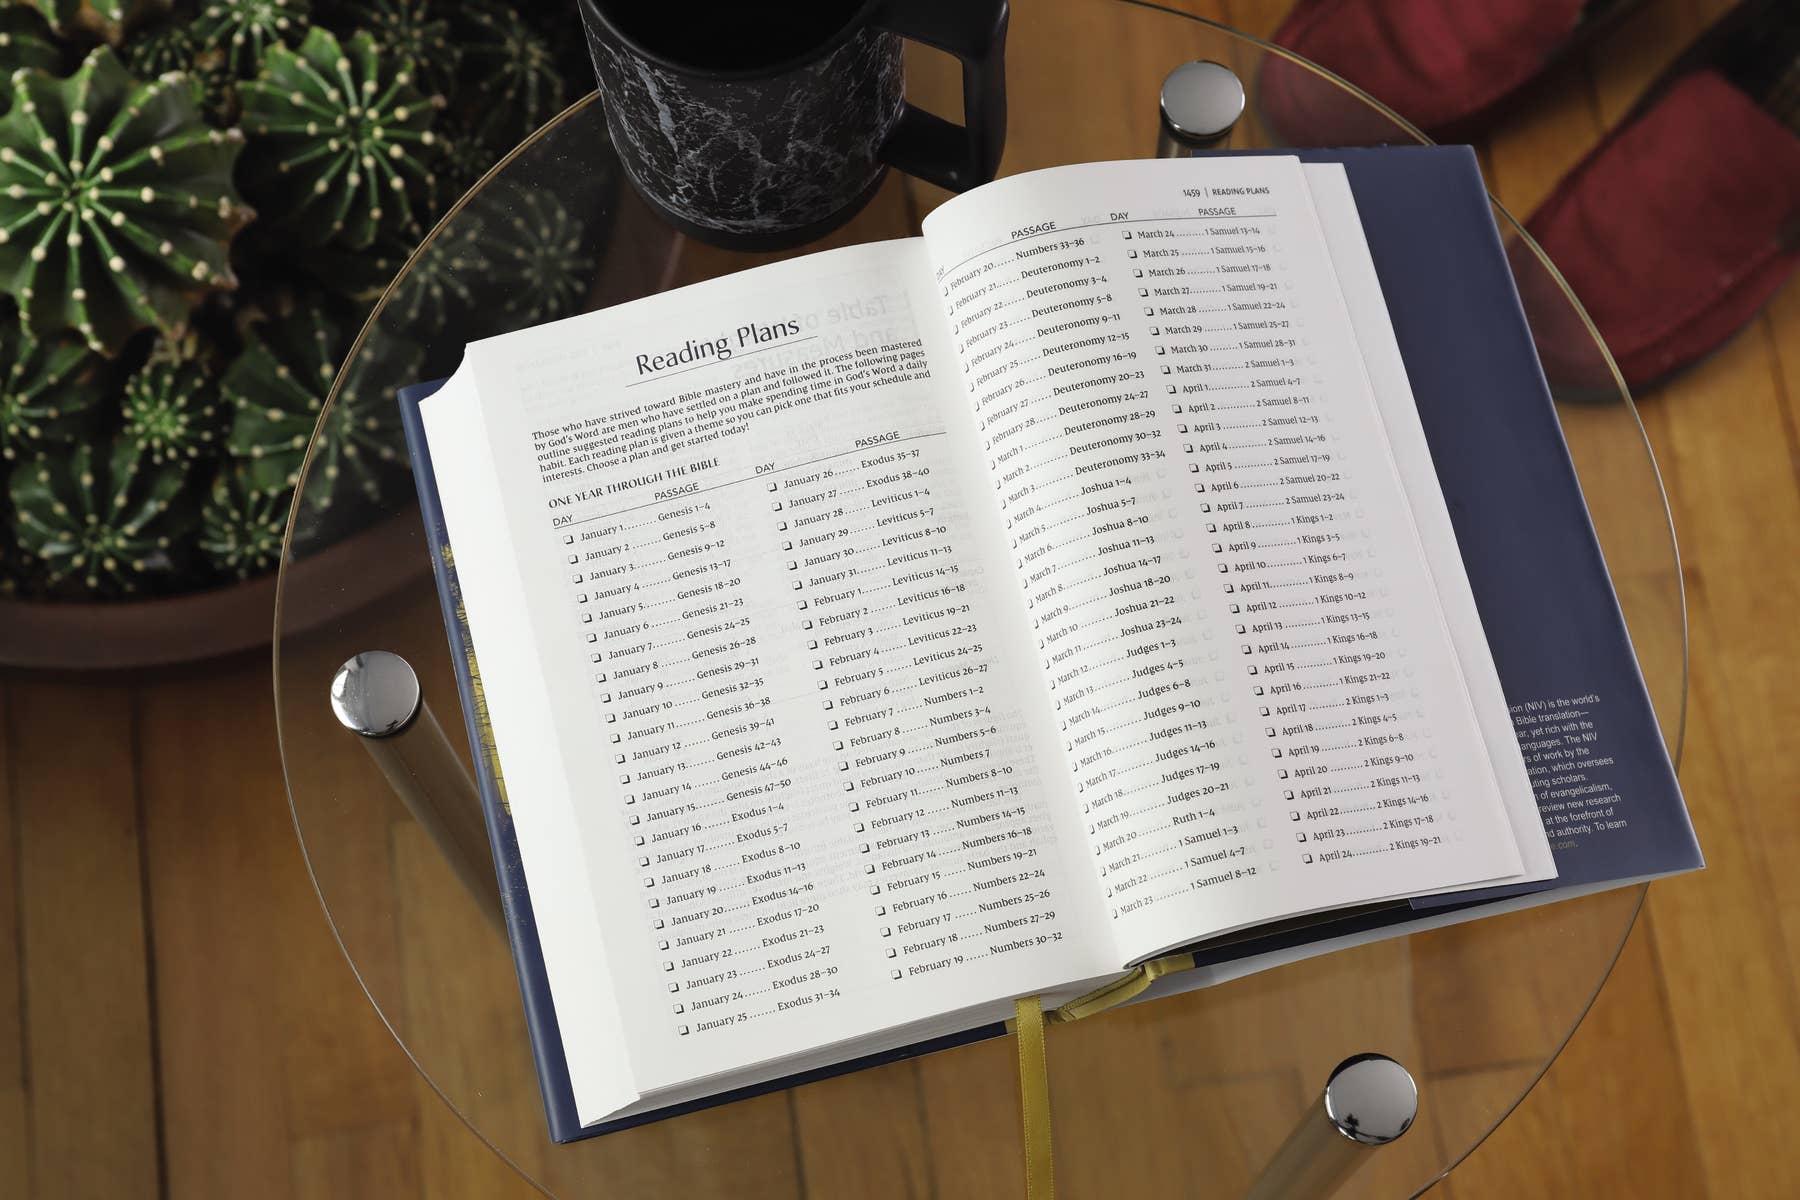 Reading Plans
Those who have strived toward Bible mastery and have in the process been mastered
by God's Word are men who have settled on a plan and followed it. The following pages
outline suggested reading plans to help you make spending time in God's Word a daily
habit. Each reading plan is given a theme so you can pick one that fits your schedule and
interests. Choose a plan and get started today!
ONE YEAR THROUGH THE BIBLE
DAY PASSAGE
January 1........ Genesis 1–4
January 2 ....... Genesis 5–8
January 3........ Genesis 9–12
January 4 ....... Genesis 13–17
January 5........ Genesis 18–20
January 6 ....... Genesis 21–23
January 7........ Genesis 24–25
January 8 ....... Genesis 26–28
January 9 ....... Genesis 29–31
January 10 ...... Genesis 32–35
January 11....... Genesis 36–38
January 12 ...... Genesis 39–41
January 13....... Genesis 42–43
January 14 ...... Genesis 44–46
January 15....... Genesis 47–50
January 16 ...... Exodus 1–4
January 17....... Exodus 5–7
January 18 ...... Exodus 8–10
January 19 ...... Exodus 11–13
January 20....... Exodus 14–16
January 21 ...... Exodus 17–20
January 22 ...... Exodus 21–23
January 23 ...... Exodus 24–27
January 24....... Exodus 28–30
January 25 ...... Exodus 31–34
DAY PASSAGE
January 26....... Exodus 35–37
January 27 ...... Exodus 38–40
January 28 ...... Leviticus 1–4
January 29 ...... Leviticus 5–7
January 30 ...... Leviticus 8–10
January 31....... Leviticus 11–13
February 1....... Leviticus 14–15
February 2 ...... Leviticus 16–18
February 3 ...... Leviticus 19–21
February 4 ...... Leviticus 22–23
February 5 ...... Leviticus 24–25
February 6 ...... Leviticus 26–27
February 7 ...... Numbers 1–2
February 8 ...... Numbers 3–4
February 9 ...... Numbers 5–6
February 10 ..... Numbers 7
February 11...... Numbers 8–10
February 12 ..... Numbers 11–13
February 13 ..... Numbers 14–15
February 14 ..... Numbers 16–18
February 15 ..... Numbers 19–21
February 16 ..... Numbers 22–24
February 17 ..... Numbers 25–26
February 18 ..... Numbers 27–29
February 19 ..... Numbers 30–32
1459 | READING PLANS
DAY PASSAGE
February 20...... Numbers 33–36
February 21...... Deuteronomy 1–2
February 22 ..... Deuteronomy 3–4
February 23 ..... Deuteronomy 5–8
February 24...... Deuteronomy 9–11
February 25 ..... Deuteronomy 12–15
February 26...... Deuteronomy 16–19
February 27 ..... Deuteronomy 20–23
February 28 ..... Deuteronomy 24–27
March 1.......... Deuteronomy 28–29
March 2.......... Deuteronomy 30–32
March 3.......... Deuteronomy 33–34
March 4.......... Joshua 1–4
March 5.......... Joshua 5–7
March 6.......... Joshua 8–10
March 7.......... Joshua 11–13
March 8.......... Joshua 14–17
March 9.......... Joshua 18–20
March 10 ........ Joshua 21–22
March 11......... Joshua 23–24
March 12 ........ Judges 1–3
March 13......... Judges 4–5
March 14......... Judges 6–8
March 15......... Judges 9–10
March 16......... Judges 11–13
March 17......... Judges 14–16
March 18......... Judges 17–19
March 19 ........ Judges 20–21
March 20 ........ Ruth 1–4
March 21......... 1 Samuel 1–3
March 22 ........ 1 Samuel 4–7
March 23 ........ 1 Samuel 8–12
DAY PASSAGE
March 24......... 1 Samuel 13–14
March 25 ........ 1 Samuel 15–16
March 26 ........ 1 Samuel 17–18
March 27......... 1 Samuel 19–21
March 28 ........ 1 Samuel 22–24
March 29 ........ 1 Samuel 25–27
March 30 ........ 1 Samuel 28–31
March 31......... 2 Samuel 1–3
April 1........... 2 Samuel 4–7
April 2 ........... 2 Samuel 8–11
April 3 ........... 2 Samuel 12–13
April 4 ........... 2 Samuel 14–16
April 5 ........... 2 Samuel 17–19
April 6 ........... 2 Samuel 20–22
April 7 ........... 2 Samuel 23–24
April 8 ........... 1 Kings 1–2
April 9 ........... 1 Kings 3–5
April 10 .......... 1 Kings 6–7
April 11........... 1 Kings 8–9
April 12 .......... 1 Kings 10–12
April 13 .......... 1 Kings 13–15
April 14 .......... 1 Kings 16–18
April 15 .......... 1 Kings 19–20
April 16 .......... 1 Kings 21–22
April 17 .......... 2 Kings 1–3
April 18 .......... 2 Kings 4–5
April 19 .......... 2 Kings 6–8
April 20 .......... 2 Kings 9–10
April 21 .......... 2 Kings 11–13
April 22 .......... 2 Kings 14–16
April 23 .......... 2 Kings 17–18
April 24.......... 2 Kings 19–21
(NIV) is the world's
Bible translation—
yet rich with the
The NIV
of work by the
which oversees
scholars.
of evangelicalism,
review new research
at the forefront of
authority. To learn